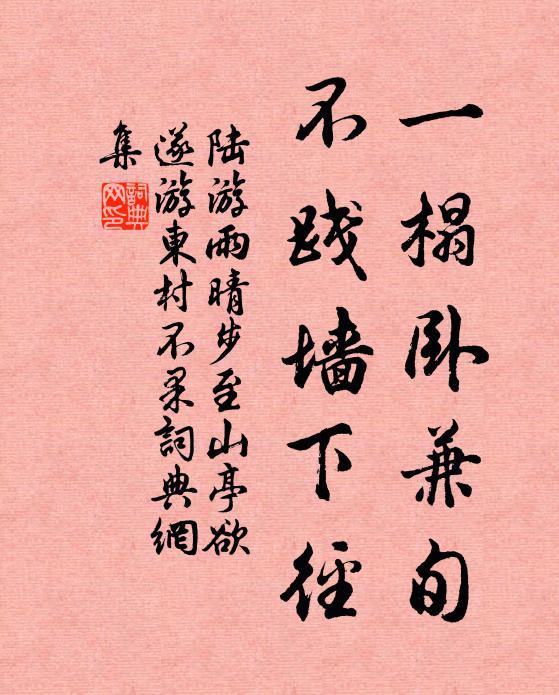 一榻卧兼旬
不践墙下径
陆游雨晴步至山亭欲
遂游東村不果詞典網
集
詞典
网印